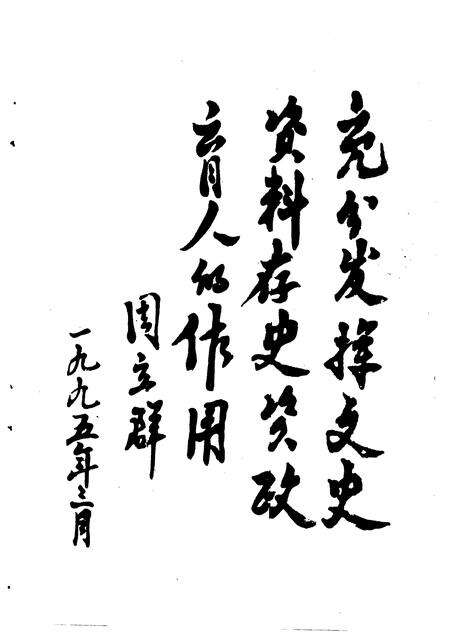 充分发挥文史
资料存史资政
育人的作用
周立群
一九九五年三月